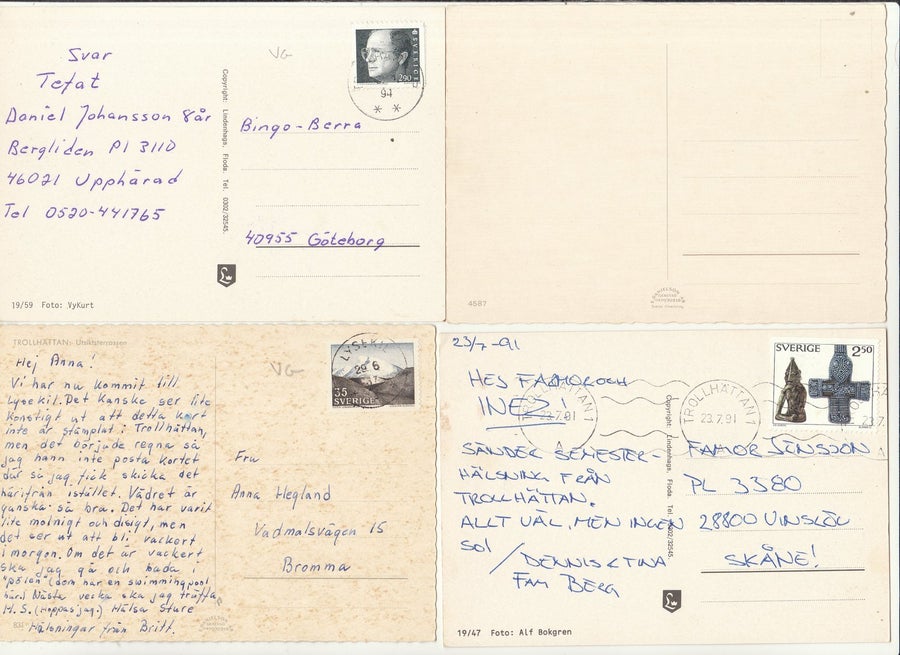 Svar
Tefat
Daniel Johansson 8år
Bergliden Pl 3110
46021 Upphärad
Tel 0520-441765
VG
SVERIGE
290
94
Copyright: Lindenhags, Floda. Tel. 0302/32545.
Bingo-Berra
40955 Göteborg
19/59 Foto: VyKurt
4587
TROLLHÄTTAN: Utsiktsterrassen
Hej Anna!
Vi har nu kommit till
Lysekil. Det kanske ser lite
konstigt ut att detta kort
inte är stämplat i Trollhättan,
men det började regna så
jag hann inte posta kortet
där så jag fick skicka det
härifrån istället. Vädret är
ganska så bra. Det har varit
lite molnigt och disigt, men
det ser ut att bli vackert
i morgon. Om det är vackert
ska jag gå och bada i
"polen" (dom har en swimmingpool
här.) Nästa vecka ska jag träffa
H.S. (Hoppas jag.) Hälsa Sture
Hälsningar från Britt.
VG
LYSEKIL
29 6
35
SVERIGE
Fru
Anna Hegland
Vadmalsvägen 15
Bromma
23/7 -91
HEJ FARMOR OCH
INEZ!
SÄNDER SEMESTER-
HÄLSNING FRÅN
TROLLHÄTTAN.
ALLT VÄL, MEN INGEN
SOL
/DENNIS KTINA
FAM BERG
TROLLHÄTTAN 1
23.7.91
TROLLHÄTTAN 1
23.7.91
SVERIGE 2.50
23.7
Copyright: Lindenhags, Floda. Tel. 0302/32545.
FAMOR JÖNSSON
PL 3380
28800 VINSLÖV
SKÅNE!
19/47 Foto: Alf Bokgren